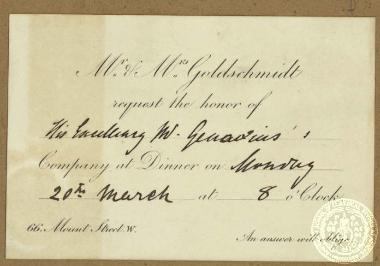 Mr. & Mrs. Goldschmidt
request the honor of
His Excellency Mr. Genadius's
Company at Dinner on Monday
20th March at 8 o'Clock
66. Mount Street. W.
An answer will oblige